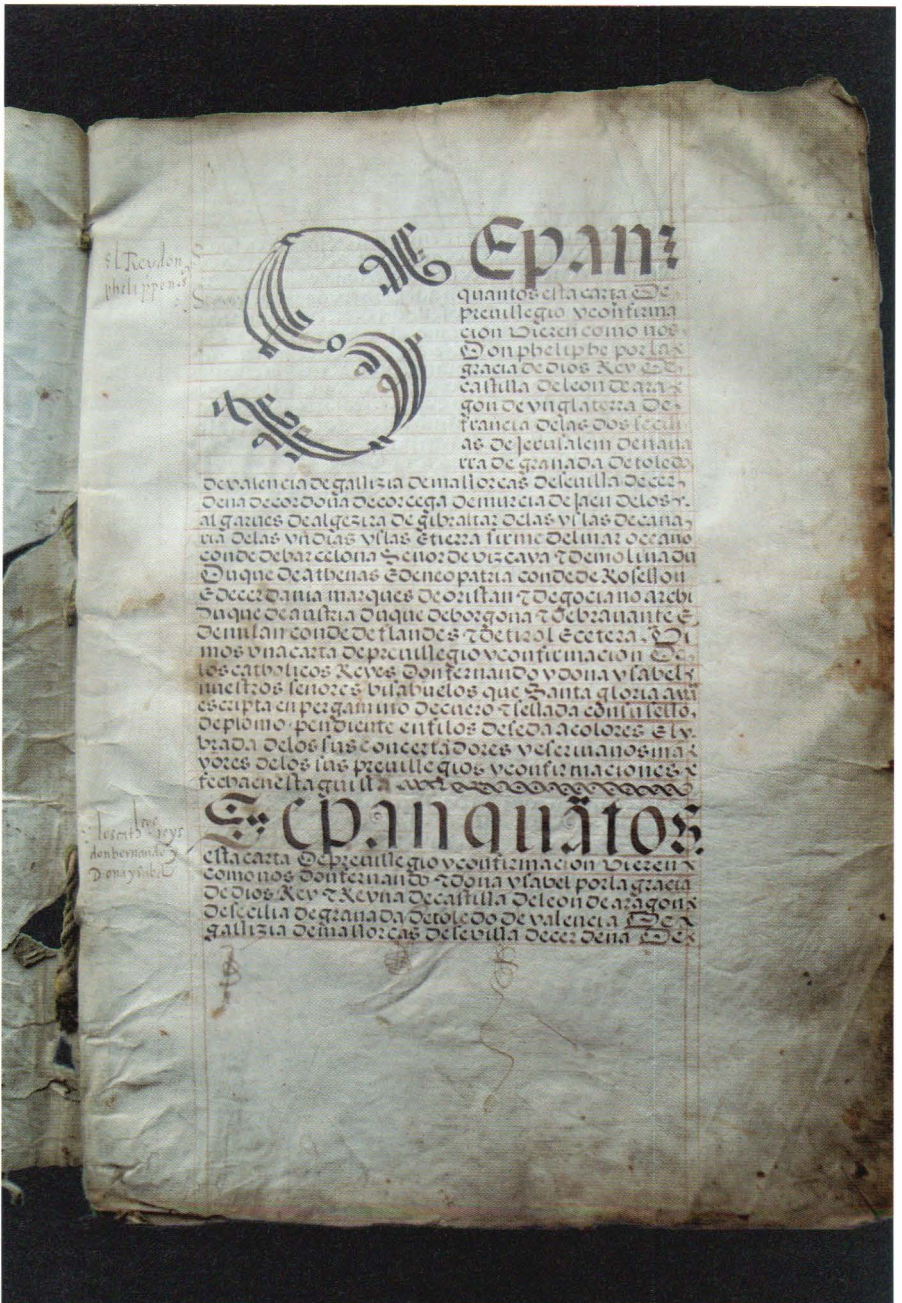 el Rey don
phelippe n.s
SEpan
quantos esta carta De
preuillegio y confirma
cion Vieren como nos
Don pheliphe por la
gracia de dios Rey De
castilla de leon de ara
gon de ynglaterra De
francia de las dos secili
as de Jerusalem de naua
rra de granada de toledo
de valencia de gallizia de mallorcas de seuilla de cer
dena de cordoua de corcega de murcia de Jaen de los
algarues de algezira de gibraltar de las yslas de cana
ria de las yndias yslas E tierra firme del mar oceano
conde de barcelona Señor de vizcaya τ de molina du
Duque de Athenas E de neopatria conde de Rosellon
E de cerdania marques de oristan τ de gociano archi
duque de austria duque de borgona τ de brauante E
de milan conde de flandes τ de tirol Ecetera Vi
mos vna carta de preuillegio y confirmacion De
los catholicos Reyes don fernando y dona ysabel
nuestros señores bisabuelos que Santa gloria ayā
escripta en pergamino de cuero τ sellada con su sello
de plomo pendiente en filos de seda a colores E ly
brada de los sus concertadores y escriuanos ma
yores de los sus preuillegios y confirmaciones
fecha en esta guisa
Sepan quātos
los cath reyes
don hernando
Dona ysabel
esta carta De preuillegio y confirmacion vieren
como nos don fernando τ dona ysabel por la gracia
de dios Rey τ Reyna de castilla de leon de aragon
de secilia de granada de toledo de valencia De
gallizia de mallorcas de sevilla de cerdena De